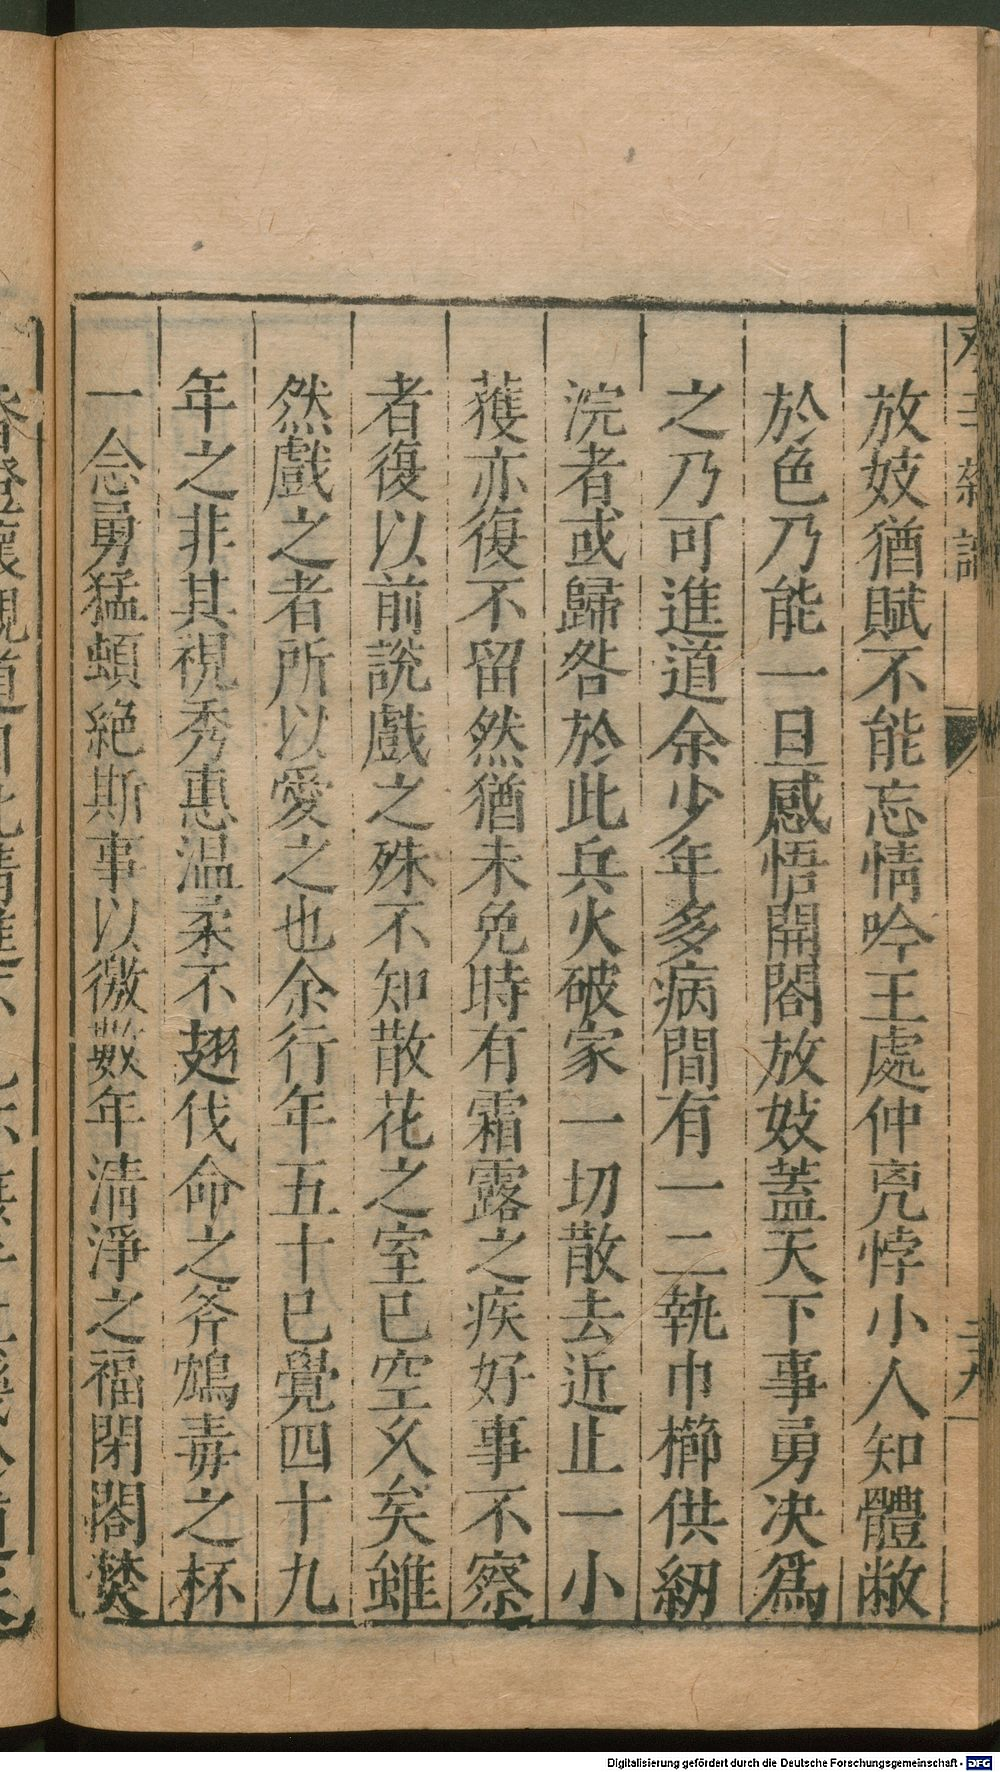 放妓猶賦不能忘情吟王處仲兇悖小人知體敝
於色乃能一旦感悟開閤放妓蓋天下事勇决爲
之乃可進道余少年多病間有一二執巾櫛供紉
浣者或歸咎於此兵火破家一切散去近止一小
獲亦復不留然猶未免時有霜露之疾好事不察
者復以前說戲之殊不知散花之室已空久矣雖
然戲之者所以愛之也余行年五十已覺四十九
年之非其視秀惠温柔不翅伐命之斧鴆毒之杯
一念勇猛頓絕斯事以徼數年清淨之福閉閤焚
Digitalisierung gefördert durch die Deutsche Forschungsgemeinschaft - DFG